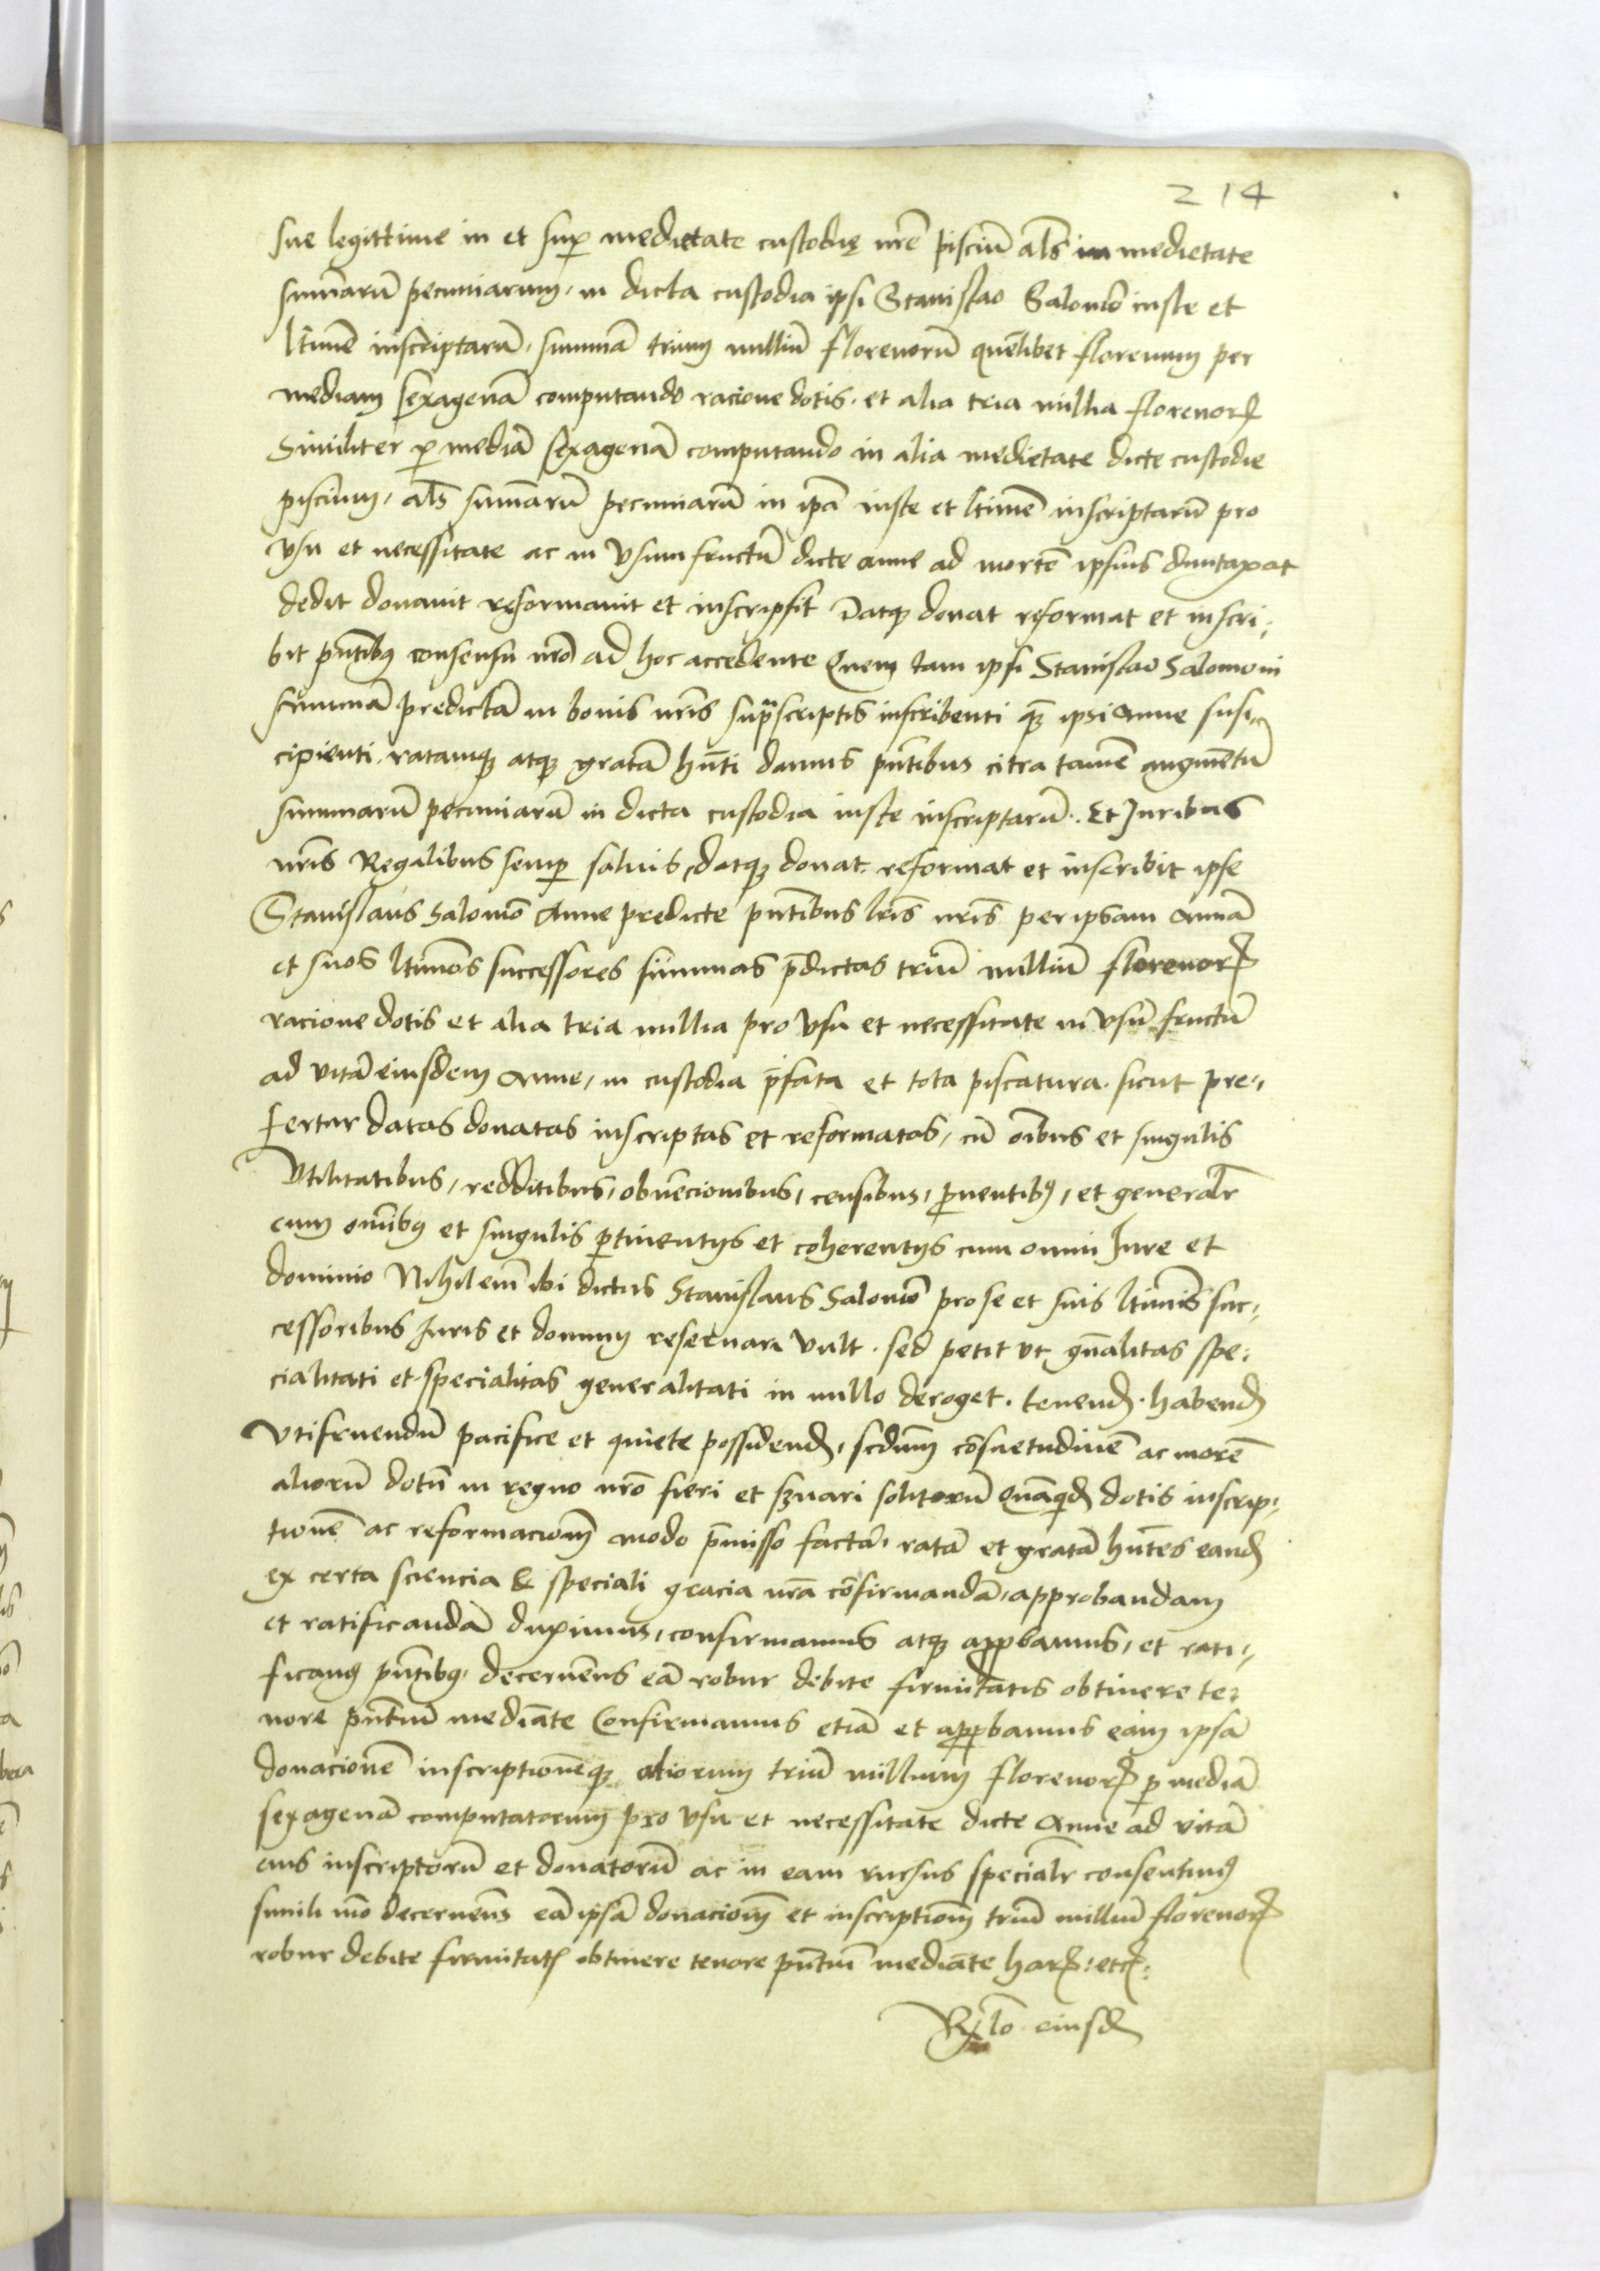 214
sue legittime in et sup medietate custodię nrē pisciū als in medietate
summarū pecuniarum, in dicta custodia ipsi Stanislao Salomō iuste et
ltimē inscriptarū, summā trium milliū florenorū quēlibet florenum per
mediam sexagenā computando racione dotis, et alia tria millia florenorꝝ
Similiter ꝑ mediā sexagenā computando in alia medietate dicte custodie
piscium, als sum̄arū pecuniarū in ipā iuste et ltimē inscriptarū pro
vsu et necessitate ac in vsumfructū dicte anne ad mortē ipsius duntaxat
dedit donauit reformauit et inscripsit Datqꝫ donat reformat et inscri-
bit pñtibꝰ consensu nrō ad hoc accedente Quem tam ipsi Stanislao Salomoni
summā predictā in bonis nris supͣscriptis inscribenti qͣꝫ ipsi Anne susi-
cipienti, ratamqꝫ atqꝫ gratā hñti damus pñtibus citra tamē augmentū
summarū pecuniarū in dicta custodia iuste inscriptarū. Et Juribus
nris Regalibus semp saluis, datqꝫ donat reformat et inscribit ipse
Stanislaus Salomō Anne predicte pñtibus lris nris per ipsam Annā
et suos ltimos successores summas pdictas triū milliū florenorꝝ
racione dotis et alia tria millia pro vsu et necessitate in vsūfructū
ad vitā eiusdem Anne, in custodia pfata et tota piscatura, sicut pre-
fertur datas donatas inscriptas et reformatas, cū oībus et singulis
Vtilitatibus, redditibus, obuēcionibus, censibus, ꝓuentibꝰ, et generalr
cum omībꝰ et singulis ꝑtinentijs et coherentijs cum omni Jure et
dominio Nihil em̄ ibi dictus Stanislaus Salomō pro se et suis ltimis suc-
cessoribus Juris et dominij reseruari vult, sed petit vt gñalitas spe-
cialitati et specialitas generalitati in nullo deroget, tenend. habend
Vtifruendū pacifice et quiete possidend, scdum cōsuetudinē ac morē
aliorū dotū in regno nrō fieri et szuari solitorū Quāquid dotis inscrip-
tionē ac reformacionē modo pmisso factā, ratā et gratā hñtes eand
ex certa sciencia & speciali gracia nrā cōfirmandā, approbandam
et ratificandā duximus, confirmamus atqꝫ apꝓbamus, et rati-
ficamꝰ pñtibꝰ, decernēns eā robur debite firmitatis obtinere te-
nore pñtiū mediāte Confirmamus etiā et apꝓbamus eam ipsā
donacionē inscriptionēqꝫ aliorum triū millium florenorꝝ ꝑ mediā
sexagenā computatorum pro vsu et necessitate dicte Anne ad vitā
eius inscriptorū et donatorū ac in eam rursus specialr consentimꝰ
simili mō decernēns eā ipsā donacionē et inscriptionē triū milliū florenorꝝ
robur debite firmitatꝭ obtinere tenore pñtiū mediāte harꝝ: etc:
Rlō eiusd